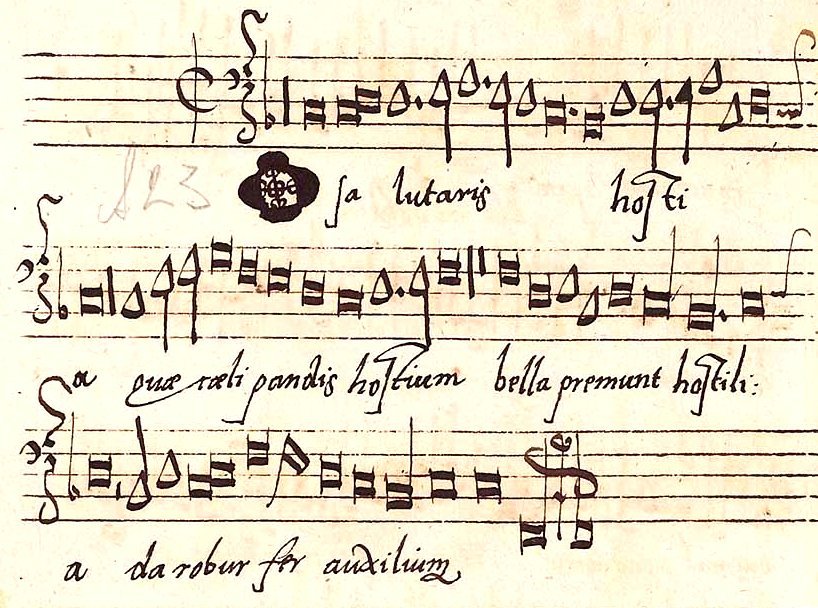 O sa lutaris hosti
a quæ cæli pandis hostium bella premunt hostili:
a da robur fer auxilium